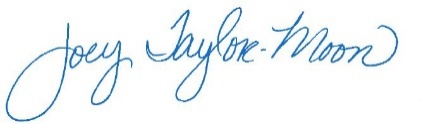 Joey Taylor-Moon